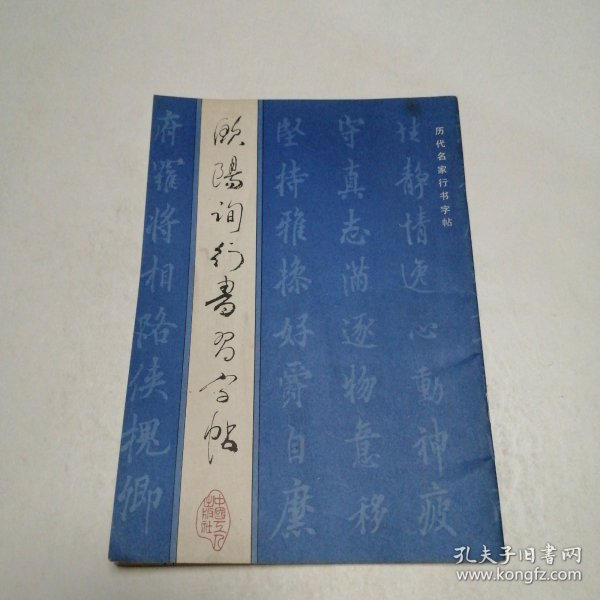 历代名家行书字帖
性静情逸心動神疲
守真志满逐物意移
堅持雅操好爵自縻
欧陽询行書習字帖
府羅将相路俠槐卿
中國工人出版社
孔夫子旧書网
www.kongfz.com